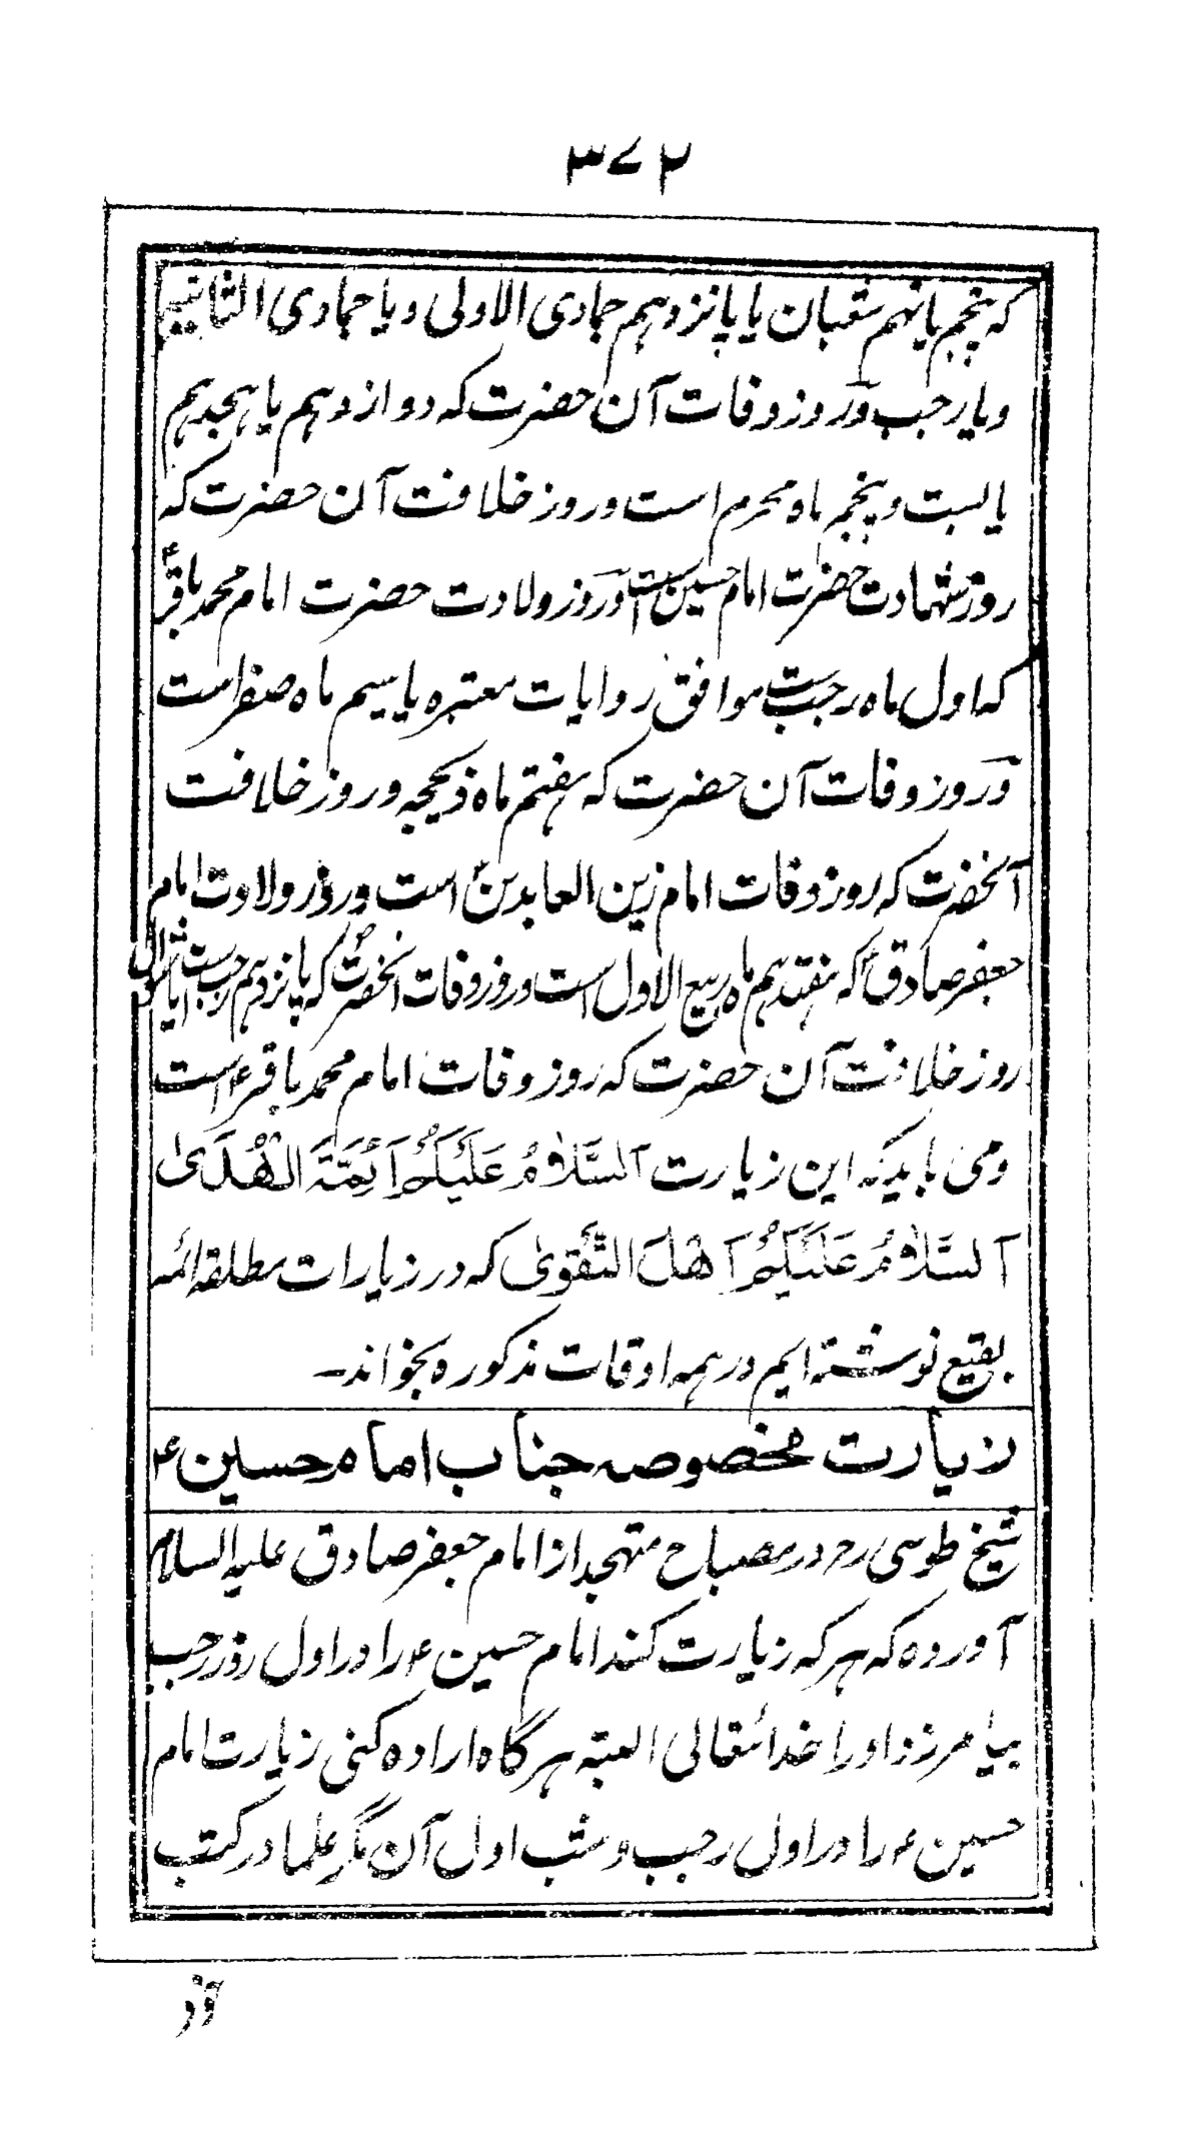 ۳۷۲
که پنجم یا نهم شعبان یا پانزدهم جمادی الاولی و یا جمادی الثانیه
و یا رجب و در روز وفات آن حضرت که دوازدهم یا هجدهم
یا بست و پنجم ماه محرم است و روز خلافت آن حضرت که
روز شهادت حضرت امام حسین است و در روز ولادت حضرت امام محمد باقرؑ
که اول ماه رجب است موافق روایات معتبره یا سیم ماه صفر است
و در روز وفات آن حضرت که هفتم ماه ذیحجه و روز خلافت
آنحضرت که روز وفات امام زین العابدینؑ است و در روز ولادت امام
جعفر صادقؑ که هفتدهم ماه ربیع الاول است و روز وفات آنحضرت که پانزدهم رجب است یا شوال
روز خلافت آن حضرت که روز وفات امام محمد باقر ع است
و می باید که این زیارت اَلسَّلَامُ عَلَیْکُمْ اَئِمَّةَ الْهُدَیٰ
اَلسَّلَامُ عَلَیْکُمْ اَهْلَ التَّقْوٰی که در زیارات مطلقه ائمه
بقیع نوشته ایم در همه اوقات مذکوره بخواند۔
زیارت مخصوصه جناب امام حسین ع
شیخ طوسی رح در مصباح متهجد از امام جعفر صادق علیه السلام
آورده که هر که زیارت کند امام حسین ع را در اول روز رجب
بیامرزد او را خدائتعالی البته هرگاه اراده کنی زیارت امام
حسین ع را در اول رجب و شب اول آن مگر علما در کتب